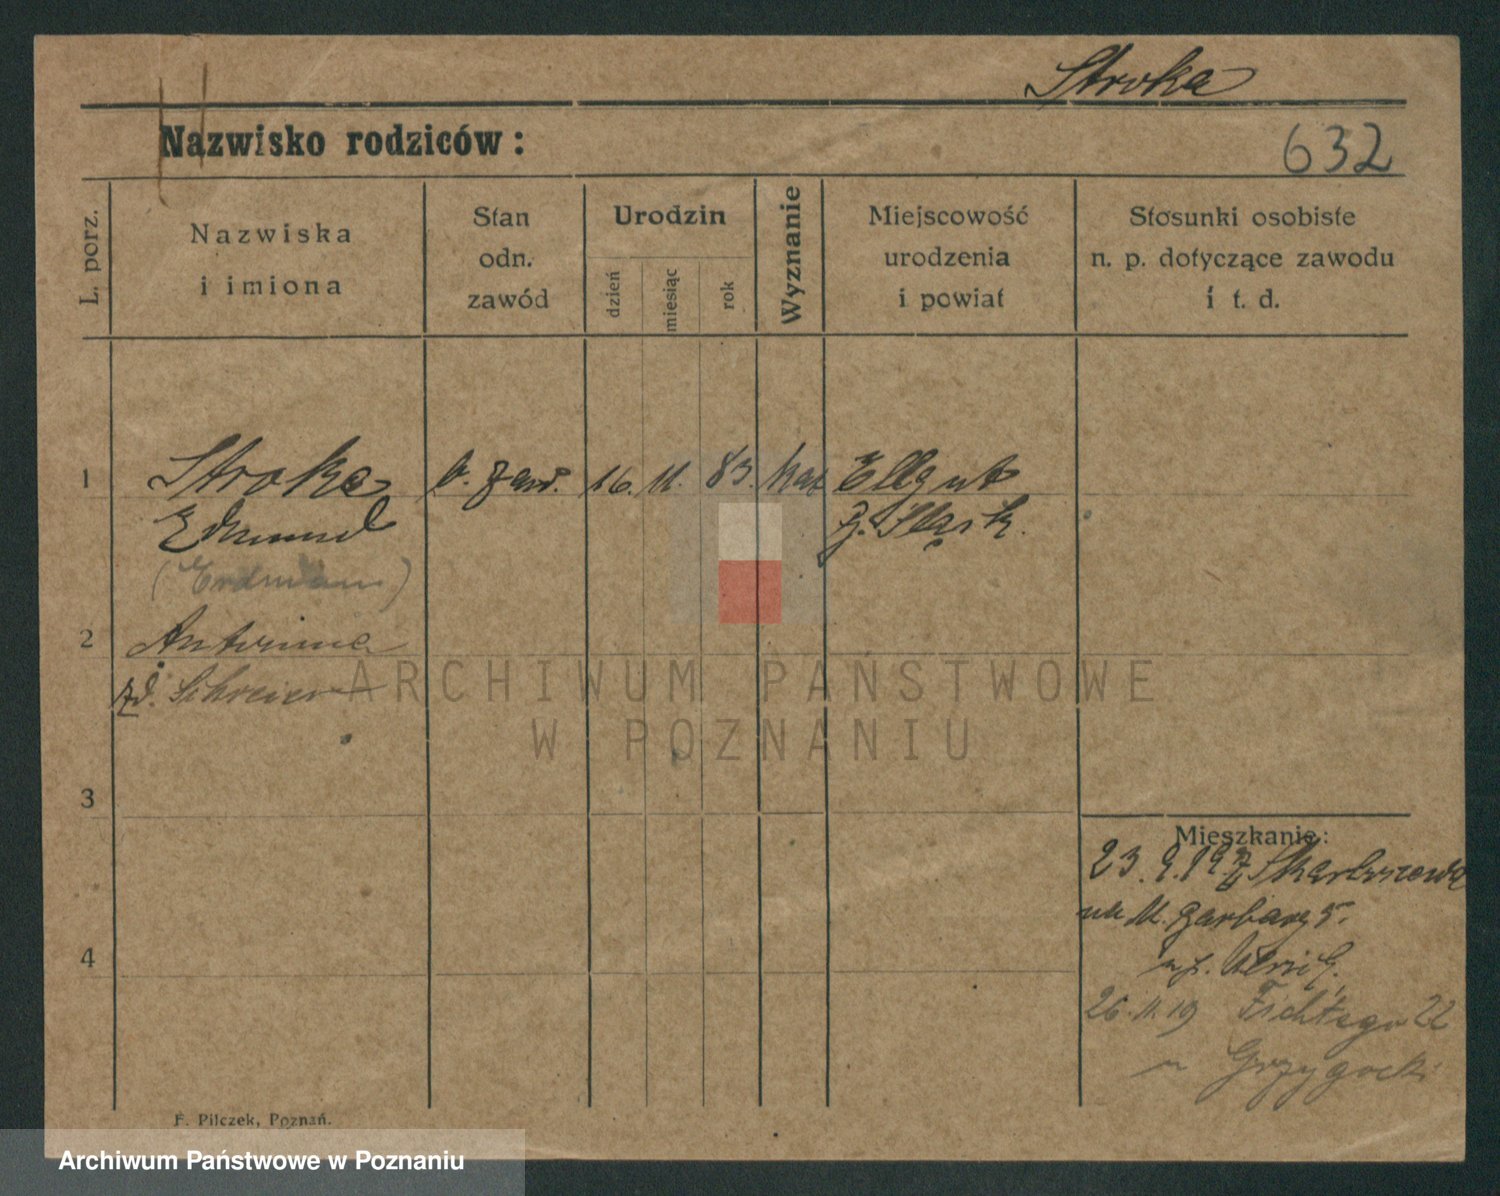 Stroka
Nazwisko rodziców:
632
L. porz.
Nazwiska
i imiona
Stan
odn.
zawód
Urodzin
dzień
miesiąc
rok
Wyznanie
Miejscowość
urodzenia
i powiat
Stosunki osobiste
n. p. dotyczące zawodu
i t. d.
1
Stroka
b. zaw.
16. 11. 83.
kat
Ellgut
Edmund
g. Śląsk.
(Erdmann)
2
Antonina
zd. Schreier
ARCHIWUM PAŃSTWOWE
W POZNANIU
3
Mieszkanie:
23. 9. 19 z Skarboszewa
na M. Garbary 5.
4
26. 11. 19 Fichtego 22
u Grzygocki
F. Pilczek, Poznań.
Archiwum Państwowe w Poznaniu